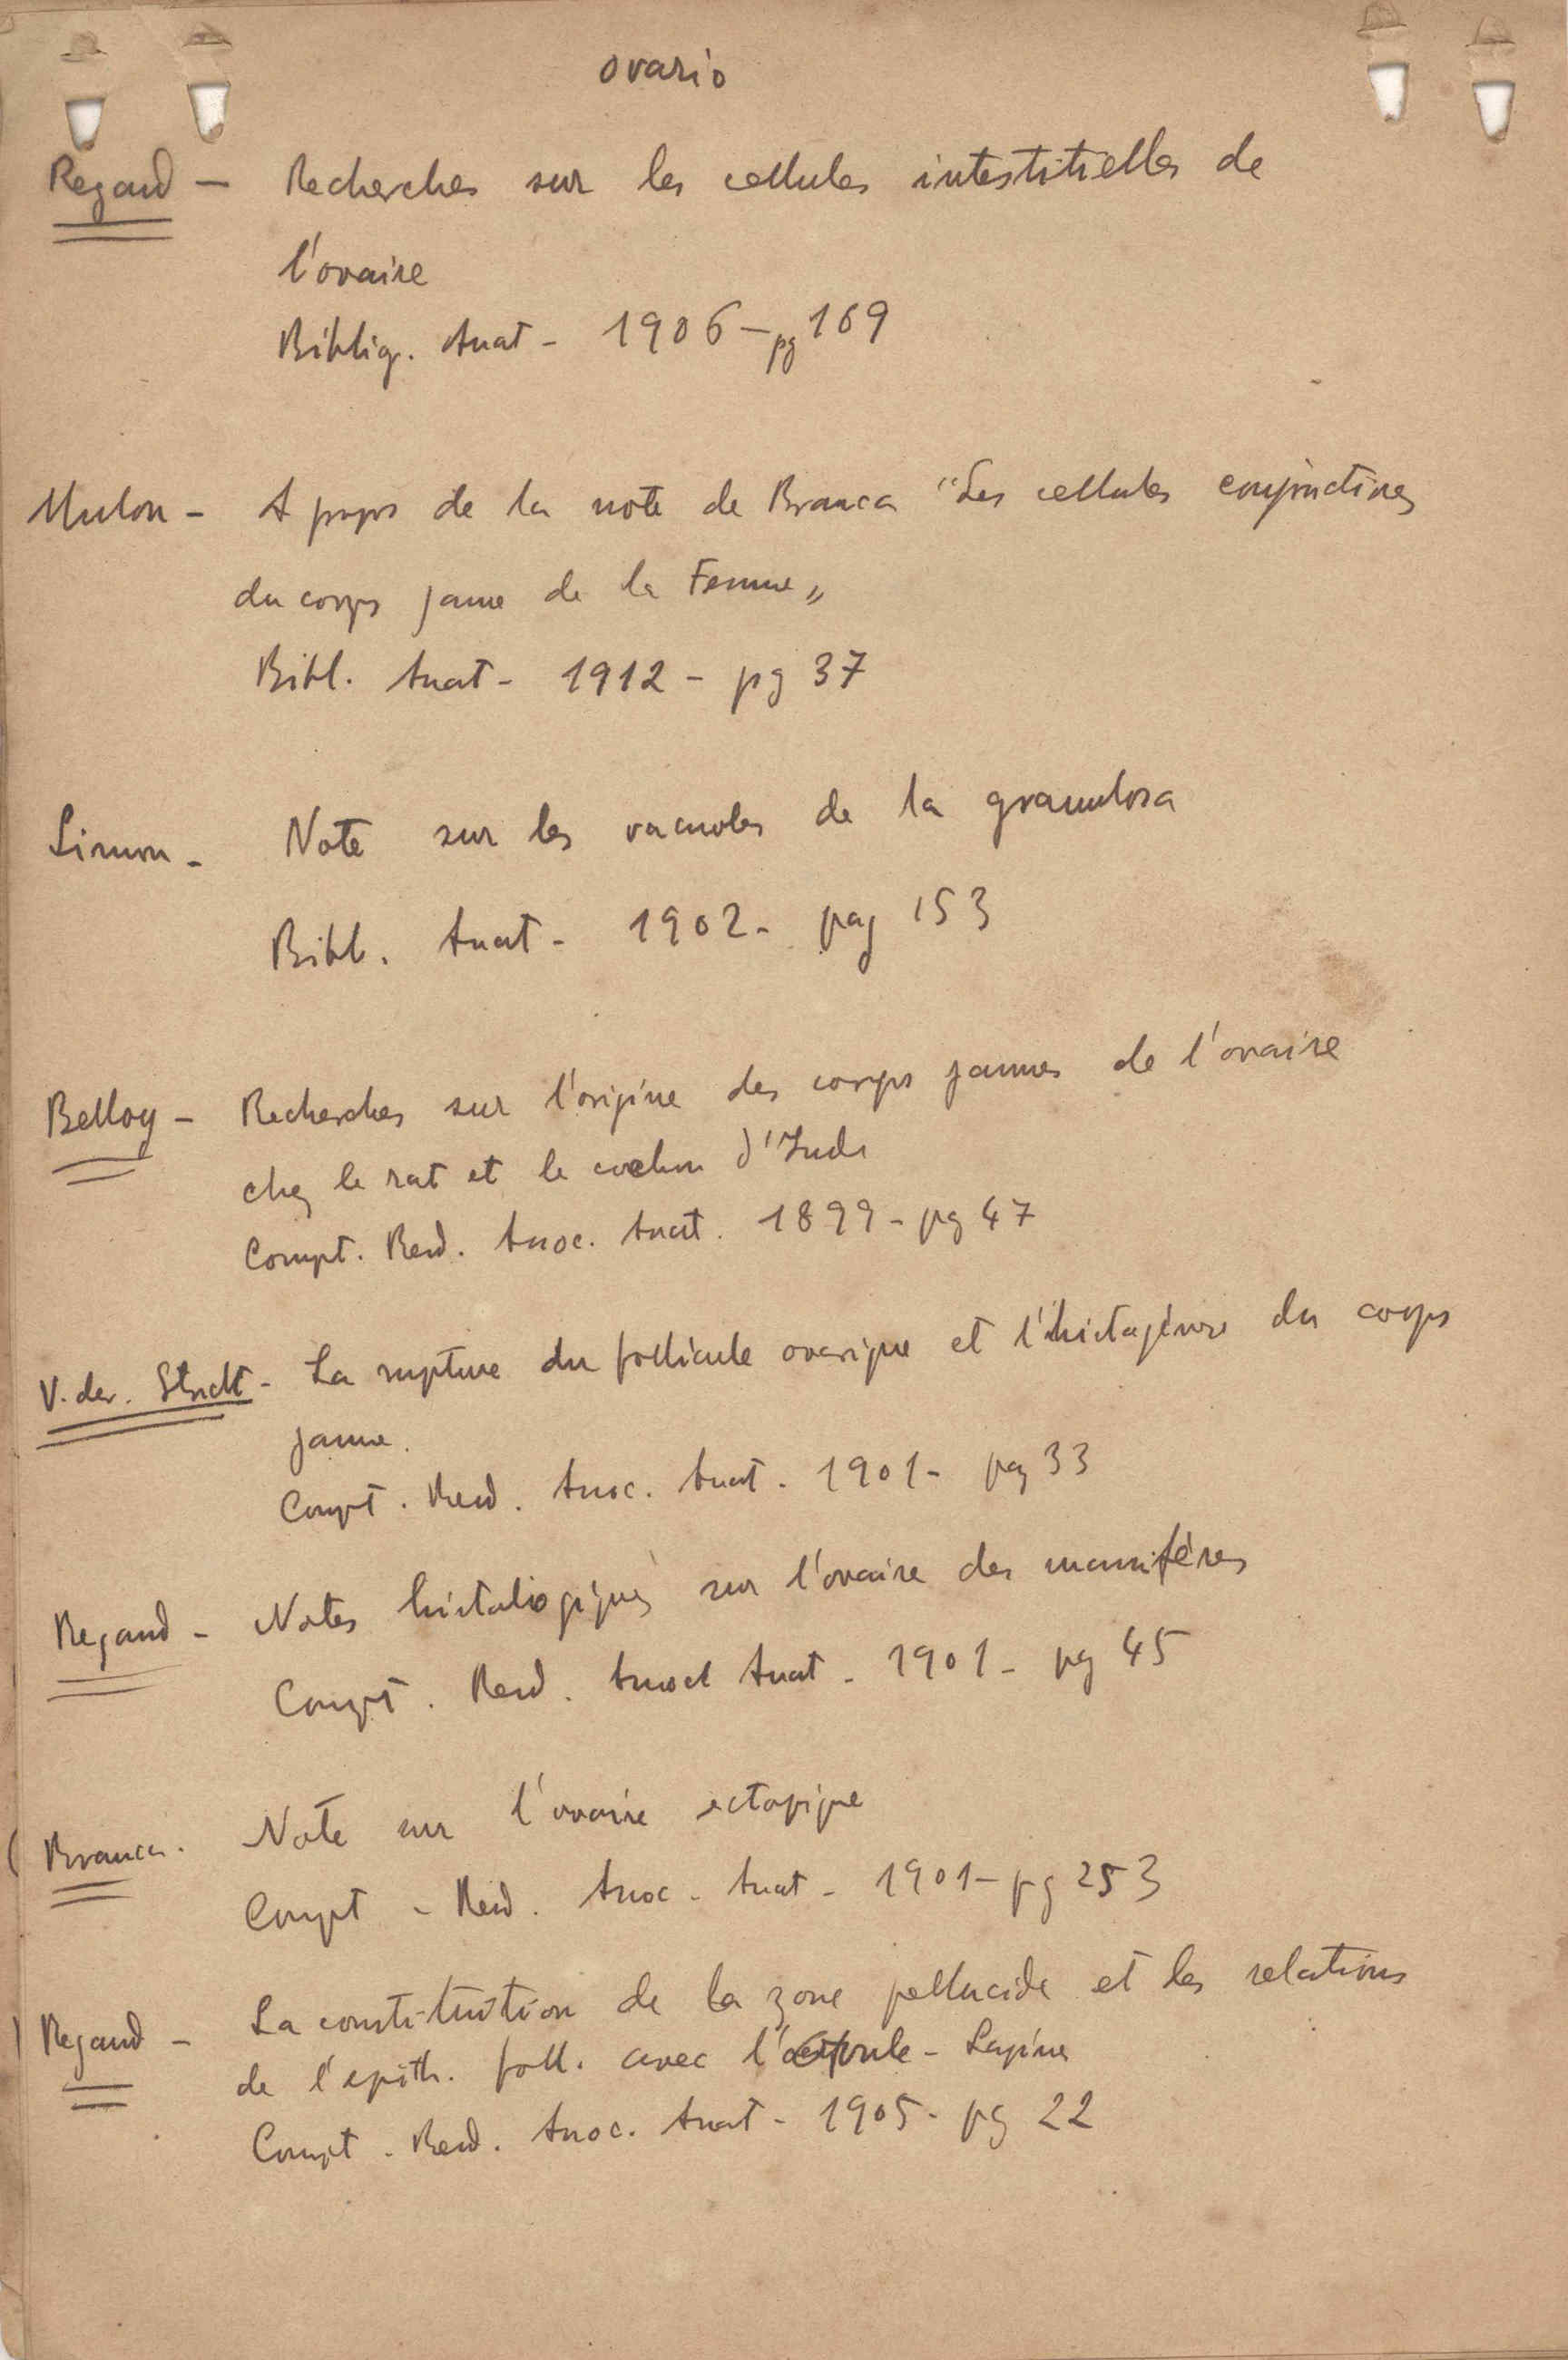 ovario
Regaud - Recherches sur les cellules intestitielles de
l'ovaire
Bibliog. Anat - 1906 - pg 169
Mulon - A propos de la note de Branca "Les cellules conjonctives
du corps jaune de la Femme"
Bibl. Anat - 1912 - pg 37
Limon - Note sur les vacuoles de la granulosa
Bibl. Anat - 1902 - pag 153
Belloy - Recherches sur l'origine des corps jaunes de l'ovaire
chez le rat et le cochon d'Inde
Compt. Rend. Assoc. Anat. 1899 - pg 47
V. der. Stricht - La rupture du follicule ovarique et l'histogénèse du corps
jaune.
Compt. Rend. Assoc. Anat. 1901 - pag 33
Regaud - Notes histologiques sur l'ovaire des mammifères
Compt. Rend. Assoc Anat - 1901 - pg 45
Branca. Note sur l'ovaire ectopique
Compt - Rend. Assoc - Anat - 1901 - pg 253
Regaud - La constitution de la zone pellucide et les relations
de l'epith. foll. avec l'ovule - Lapine
Compt - Rend. Assoc. Anat - 1905 - pg 22